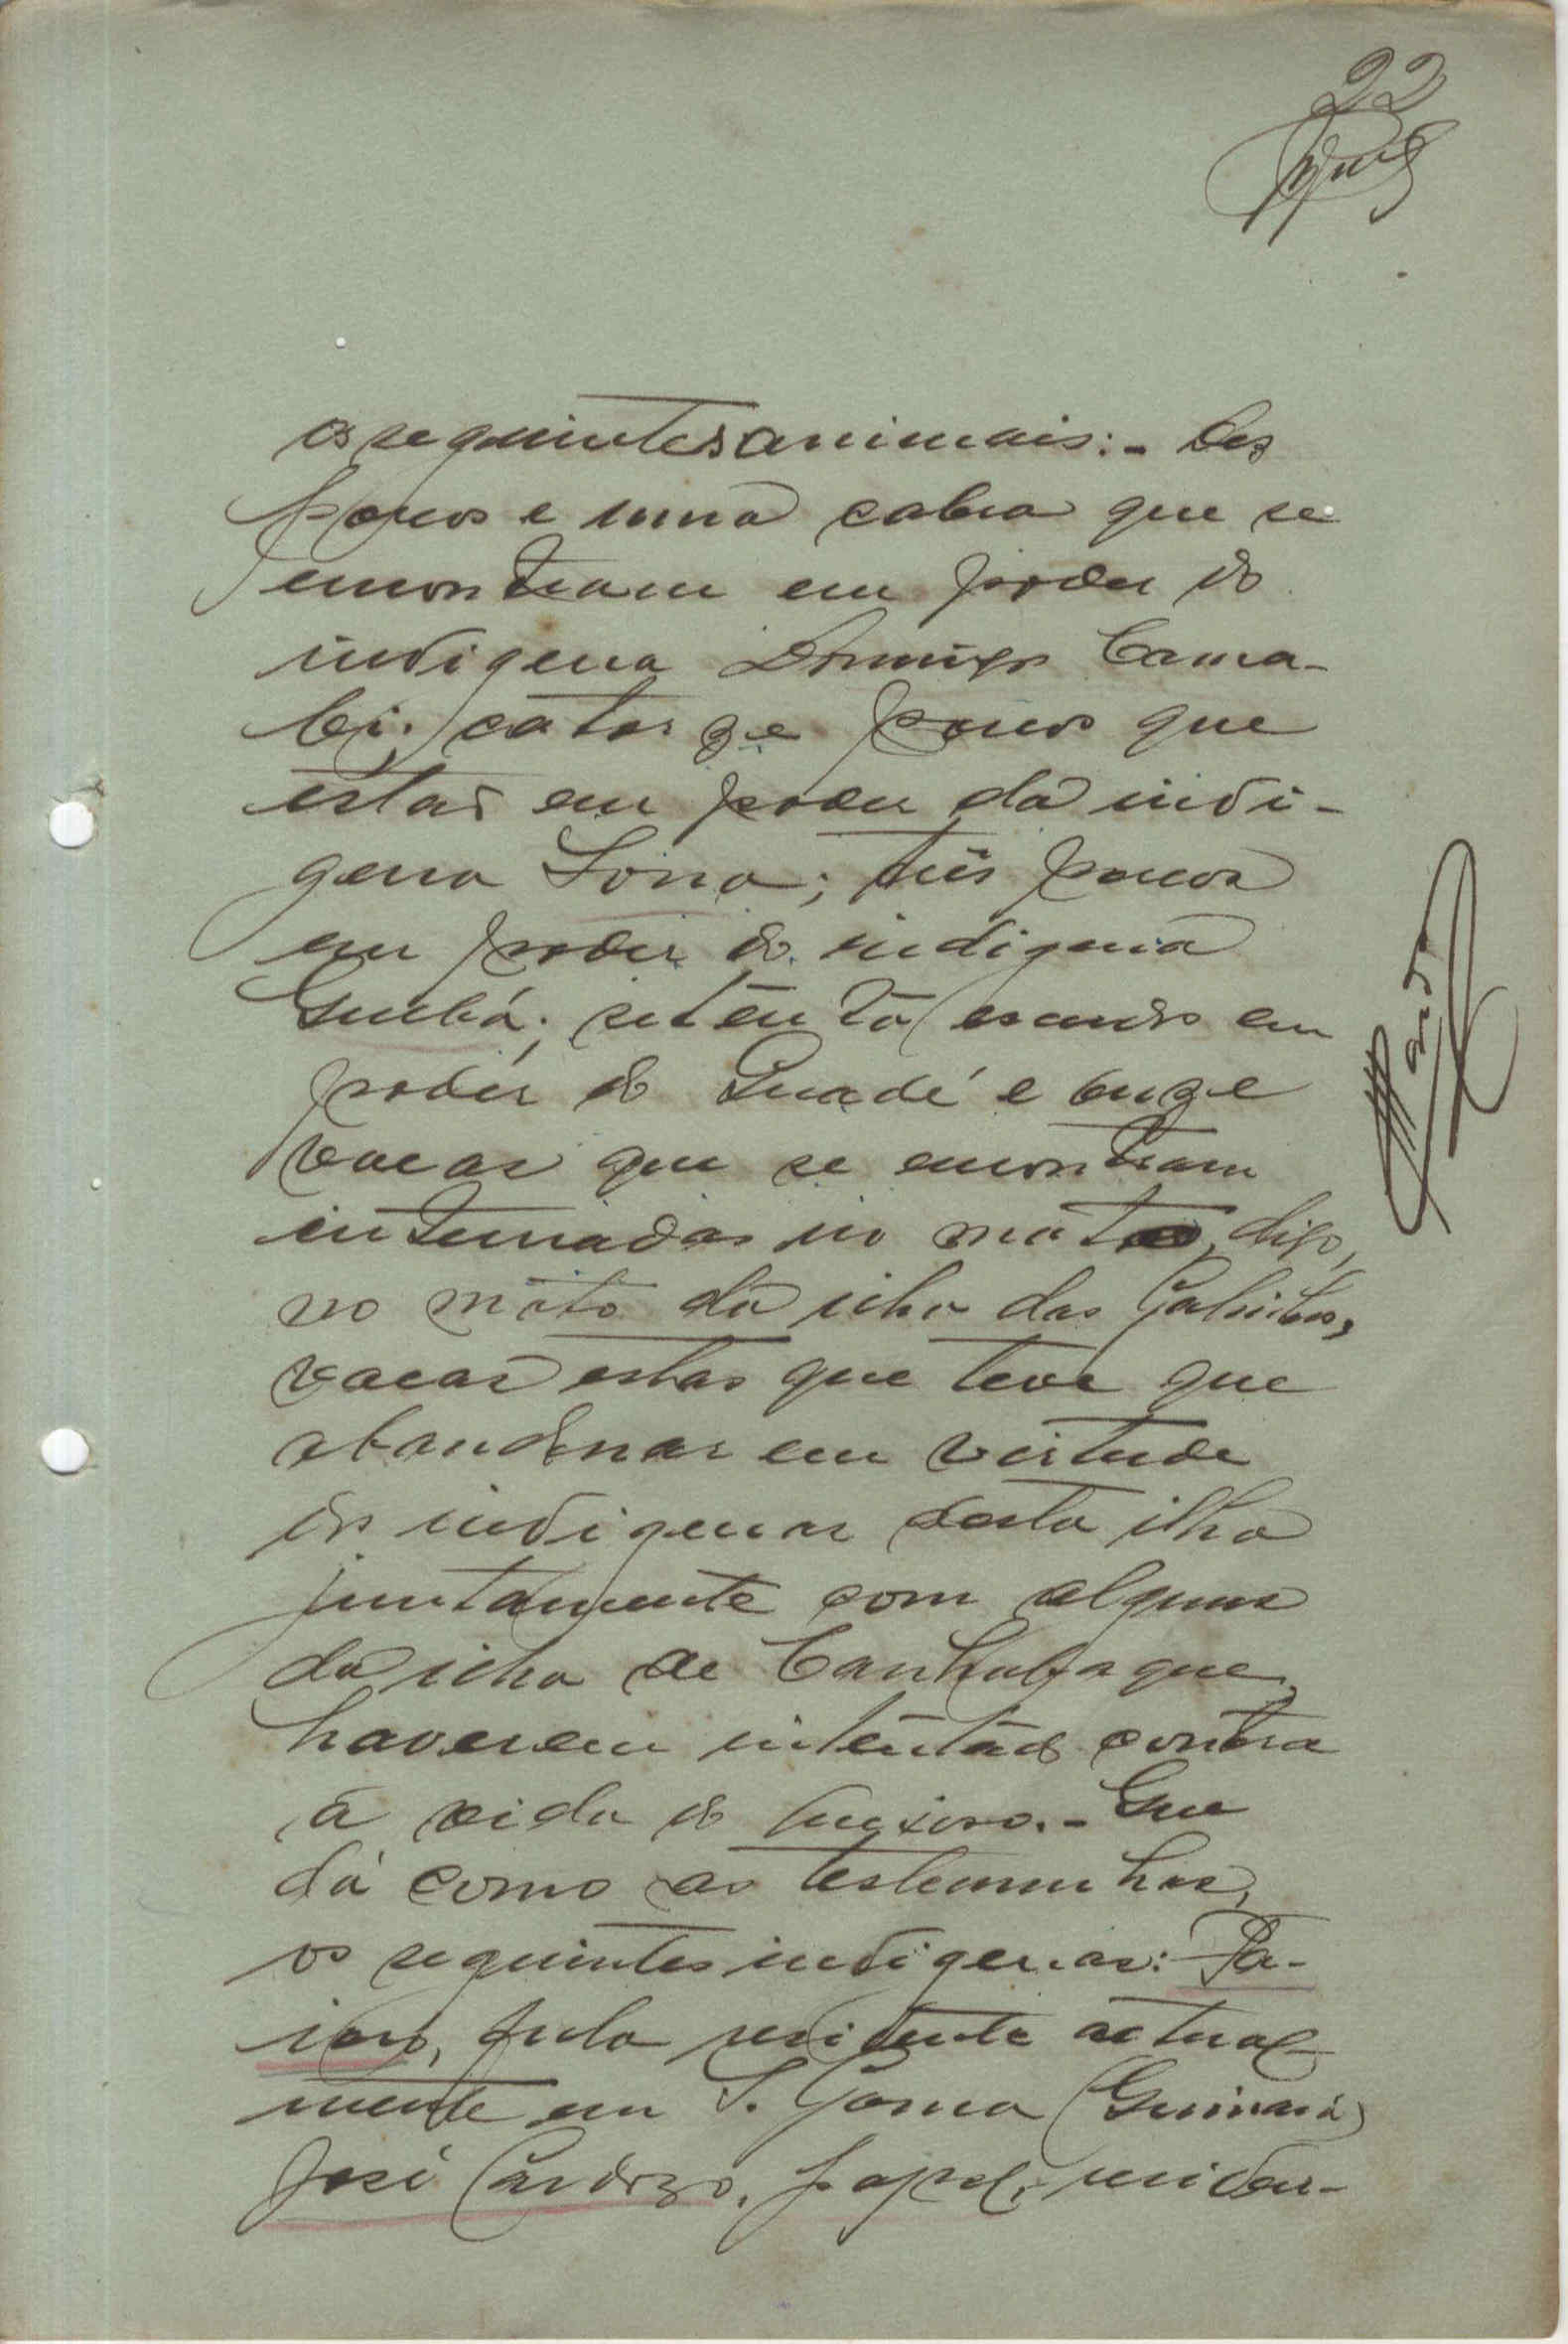 22
os seguintes animais:- Des
porcos e uma cabra que se
encontram em poder do
indigena Domingos Cama-
bi; catorze porcos que
estão em poder da indi-
gena Sona; três porcos
em poder do indigena
setenta escudos em
poder do Quadé e onze
vacas que se encontram
internadas no mato, digo,
no mato da ilha das Galinhas,
vacas estas que teve que
abandonar em virtude
dos indigenas desta ilha
juntamente com alguns
da ilha de Canhabaque
haverem intentado contra
a vida do queixoso.- Que
dá como as testemunhas,
os seguintes indigenas:
fula residente actual-
mente em S. Joana
José Cardozo, papel, residen-